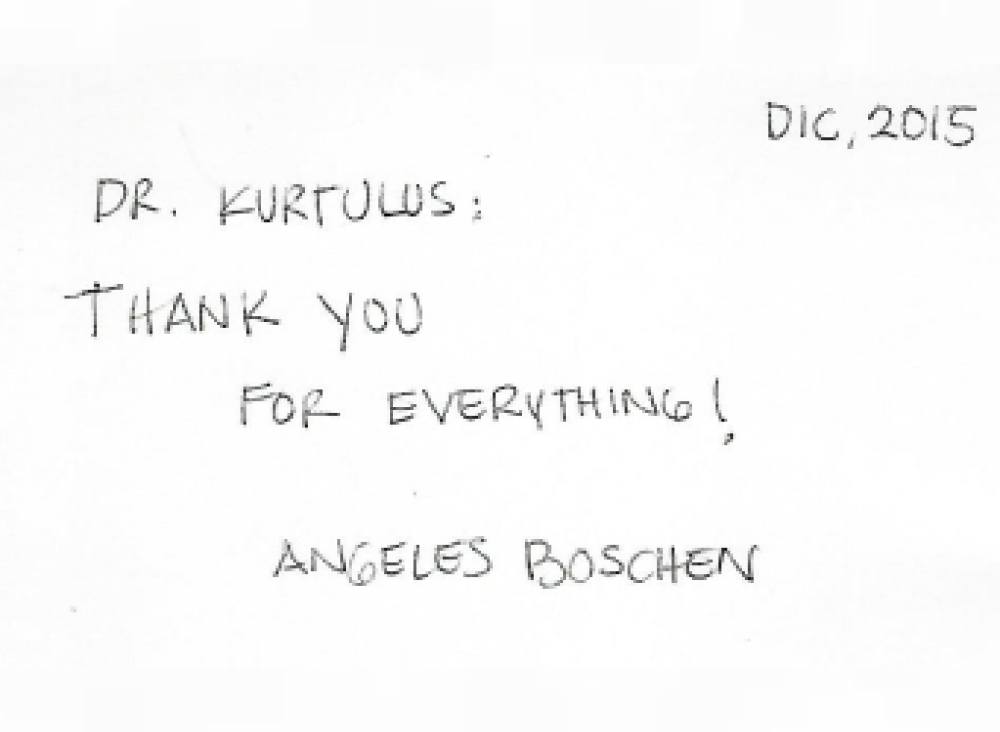 DIC, 2015
DR. KURTULUS:
THANK YOU
FOR EVERYTHING!
ANGELES BOSCHEN